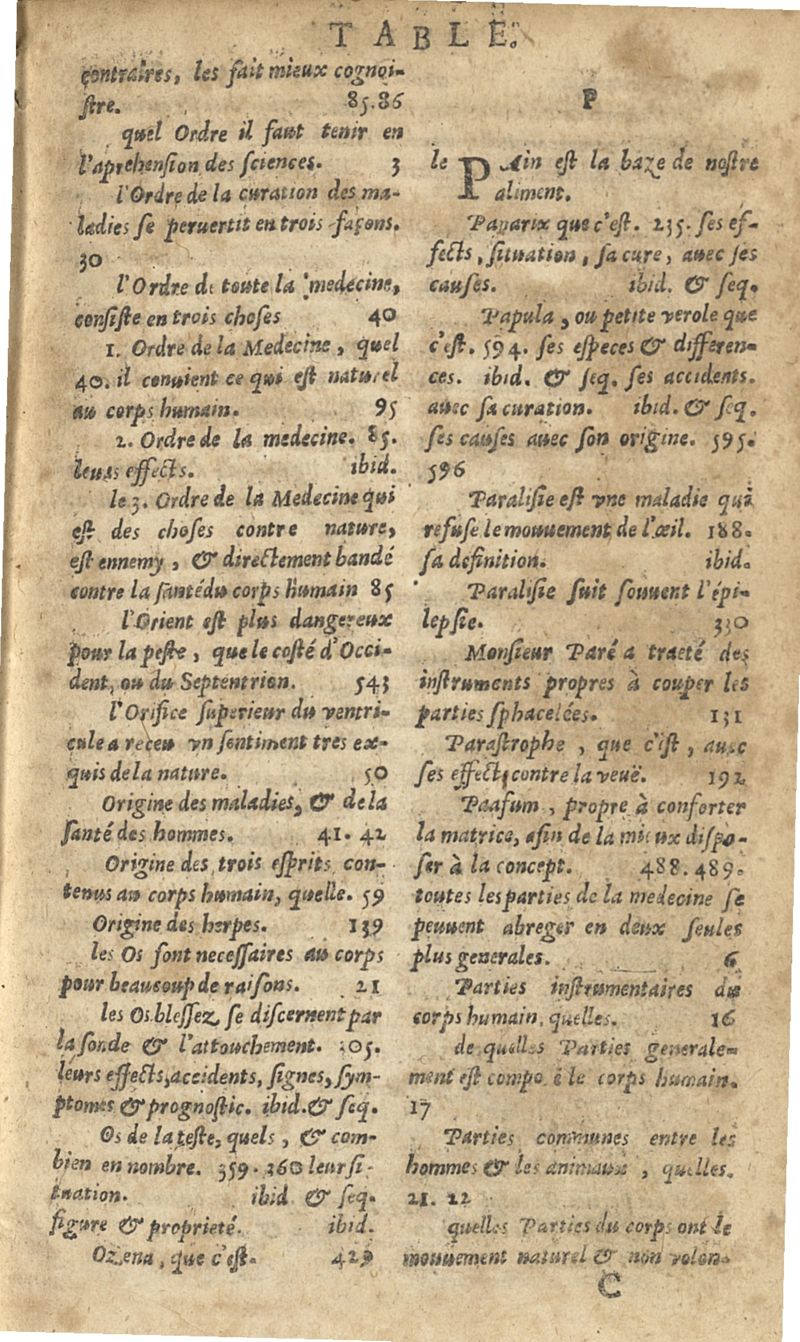 TABLE.
contraires, les fait mieux cognoi-
stre. 85.86
quel Ordre il faut tenir en
l'aprehension des sciences. 3
l'Ordre de la curation des ma-
ladies se peruertit en trois façons.
30
l'Ordre de toute la medecine,
consiste en trois choses 40
1. Ordre de la Medecine, quel
40. il conuient ce qui est naturel
au corps humain. 95
2. Ordre de la medecine. 85.
leurs effects. ibid.
le 3. Ordre de la Medecine qui
est des choses contre nature,
est ennemy, & directement bandé
contre la santé du corps humain 85
l'Orient est plus dangereux
pour la peste, que le costé d'Occi-
dent, ou du Septentrion. 543
l'Orifice superieur du ventri-
cule a receu vn sentiment tres ex-
quis de la nature. 50
Origine des maladies, & de la
santé des hommes. 41. 42
Origine des trois esprits con-
tenus au corps humain, quelle. 59
Origine des herpes. 139
les Os sont necessaires au corps
pour beaucoup de raisons. 21
les Os blessez se discernent par
la sonde & l'attouchement. 205.
leurs effects, accidents, signes, sym-
ptomes & prognostic. ibid. & seq.
Os de la teste, quels, & com-
bien en nombre. 359. 360 leur si-
tuation. ibid & seq.
figure & proprieté. ibid.
Ozena, que c'est. 429
P
le Pain est la baze de nostre
aliment.
Panarix que c'est. 235. ses ef-
fects, situation, sa cure, auec ses
causes. ibid. & seq.
Papula, ou petite verole que
c'est. 594. ses especes & differen-
ces. ibid. & seq. ses accidents.
auec sa curation. ibid. & seq.
ses causes auec son origine. 595.
596
Paralisie est vne maladie qui
refuse le mouuement de l'œil. 188.
sa definition. ibid.
Paralisie suit souuent l'épi-
lepsie. 330
Monsieur Paré a traeté des
instruments propres à couper les
parties sphacelées. 131
Parastrophe, que c'est, auec
ses effects contre la veuë. 192
Paasum, propre à conforter
la matrice, afin de la mieux dispo-
ser à la concept. 488. 489.
toutes les parties de la medecine se
peuuent abreger en deux seules
plus generales. 6
Parties instrumentaires du
corps humain, quelles. 16
de quelles Parties generale-
ment est compo é le corps humain.
17
Parties communes entre les
hommes & les animaux, quelles.
21. 22
quelles Parties du corps ont le
mouuement naturel & non volon-
C